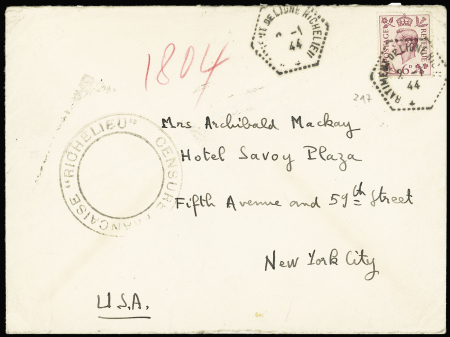 BATIMENT DE LIGNE RICHELIEU
-1
44
POSTAGE REVENUE
6D
BATIMENT DE LIGNE
-1
44
1804
217
"RICHELIEU" CENSURE FRANÇAISE
Mrs Archibald Mackay
Hotel Savoy Plaza
Fifth Avenue and 59th Street
New York City
U.S.A.